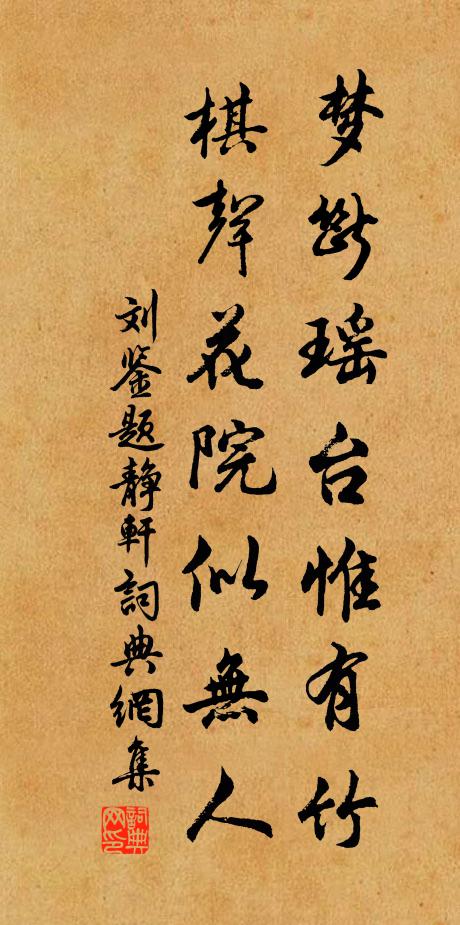 梦断瑶台惟有竹
棋声花院似無人
刘鉴题静軒詞典網集
詞典网印